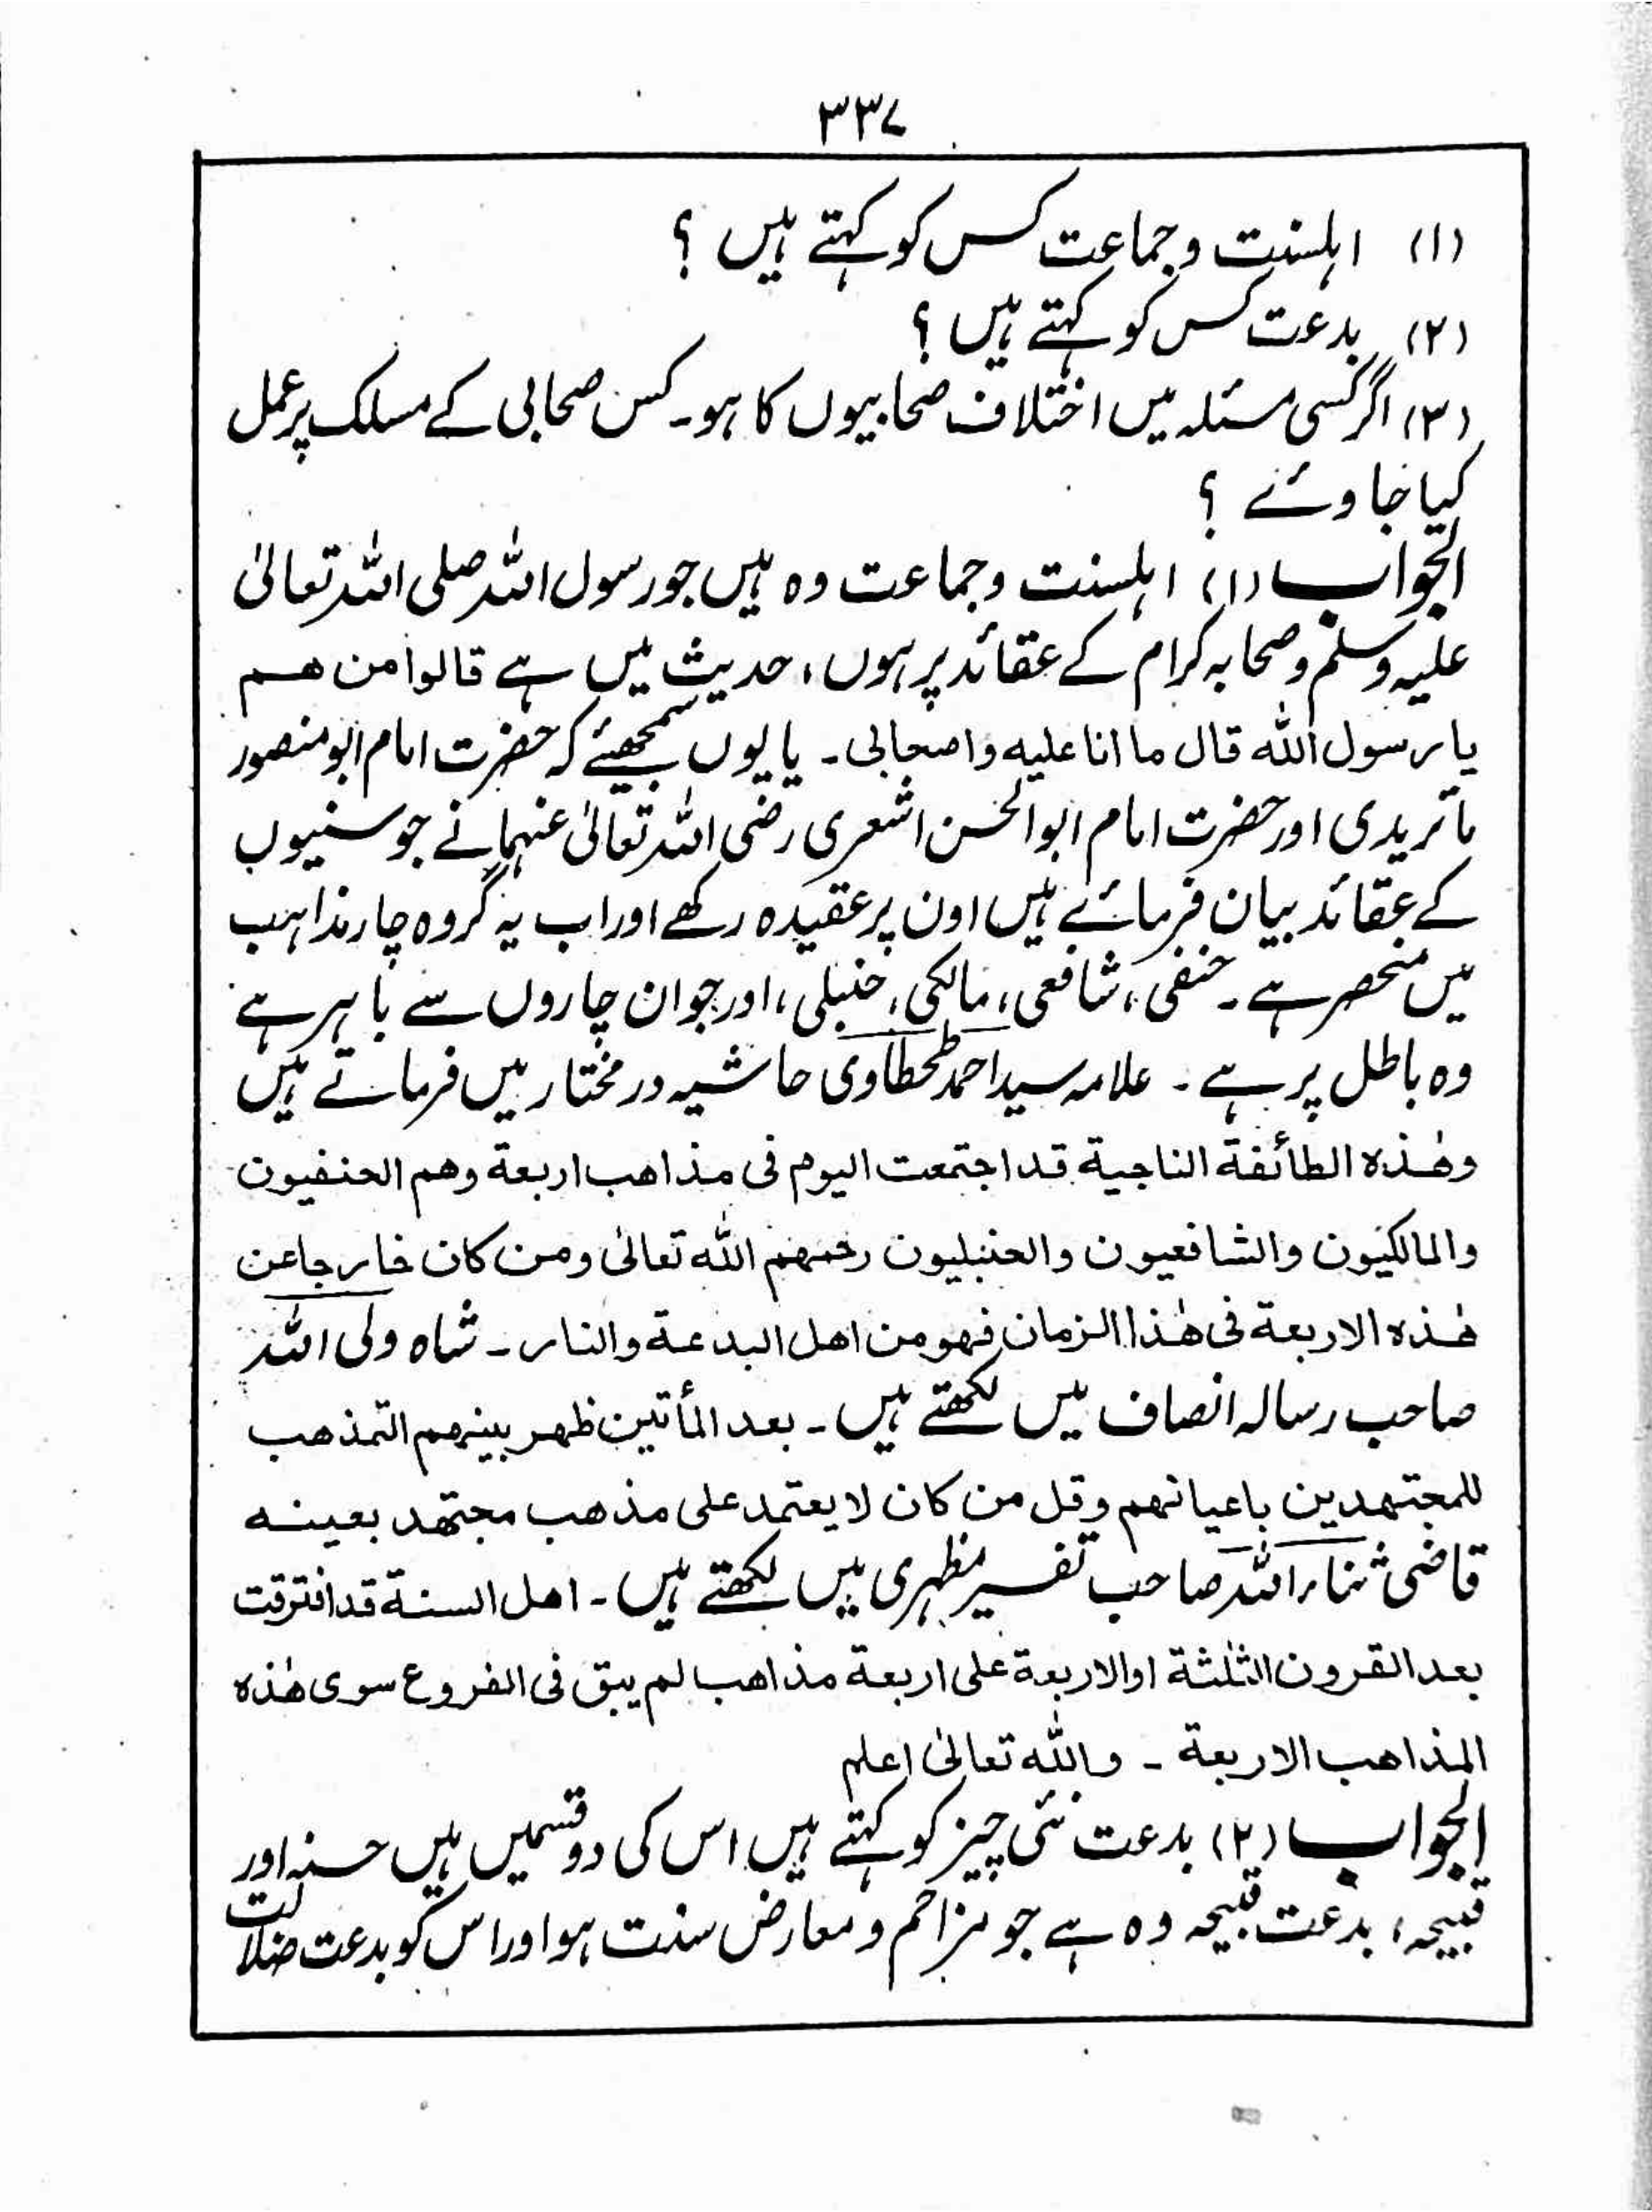 ۳۳۷
(۱) اہلسنت وجماعت کس کو کہتے ہیں ؟
(۲) بدعت کس کو کہتے ہیں ؟
(۳) اگر کسی مسئلہ میں اختلاف صحابیوں کا ہو۔ کس صحابی کے مسلک پر عمل
کیا جاوئے ؟
الجواب (۱) اہلسنت وجماعت وہ ہیں جو رسول اللہ صلی اللہ تعالیٰ
علیہ وسلم وصحابہ کرام کے عقائد پر ہوں، حدیث میں ہے قالوا من ھم
یا رسول اللہ قال ما انا علیه واصحابی۔ یا یوں سمجھیئے کہ حضرت امام ابو منصور
ماتریدی اور حضرت امام ابوالحسن اشعری رضی اللہ تعالیٰ عنہما نے جو سنیوں
کے عقائد بیان فرمائے ہیں اون پر عقیدہ رکھے اور اب یہ گروہ چار مذاہب
میں منحصر ہے۔ حنفی، شافعی، مالکی، حنبلی، اور جو ان چاروں سے باہر ہے
وہ باطل پر ہے۔ علامہ سید احمد طحطاوی حاشیہ در مختار میں فرماتے ہیں
وھٰذہ الطائفة الناجیة قد اجتمعت الیوم فی مذاھب اربعة وھم الحنفیون
والمالکیون والشافعیون والحنبلیون رحمھم اللہ تعالیٰ ومن کان خارجا عن
ھٰذہ الاربعة فی ھٰذا الزمان فھو من اھل البدعة والنار۔ شاہ ولی اللہ
صاحب رسالہ انصاف میں لکھتے ہیں۔ بعد المأتین ظھر بینھم التمذھب
للمجتھدین باعیانھم وقل من کان لا یعتمد علی مذھب مجتھد بعینہ
قاضی ثناء اللہ صاحب تفسیر مظہری میں لکھتے ہیں۔ اھل السنة قد افترقت
بعد القرون الثلٰثة او الاربعة علی اربعة مذاھب لم یبق فی الفروع سوی ھٰذہ
المذاھب الاربعة۔ واللہ تعالیٰ اعلم
الجواب (۲) بدعت نئی چیز کو کہتے ہیں اس کی دو قسمیں ہیں حسنہ اور
قبیحہ، بدعت قبیحہ وہ ہے جو مزاحم ومعارض سنت ہو اور اس کو بدعت ضلالت